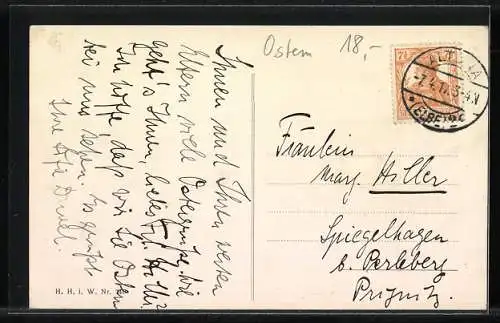 Ostern 18,-
Ihnen und Ihren werten
Eltern viele Ostergrüße. Wie
geht's Ihnen, liebes Frl. Hiller?
Ich hoffe, daß wir Sie Ostern
bei uns sehen. Es grüßt
Ihre
H. H. i. W. Nr.
7½
ALTONA
-7.4.17. 3-4 N
* (ELBE)
Fräulein
Marg. Hiller
Spiegelhagen
b. Perleberg
Prignitz.